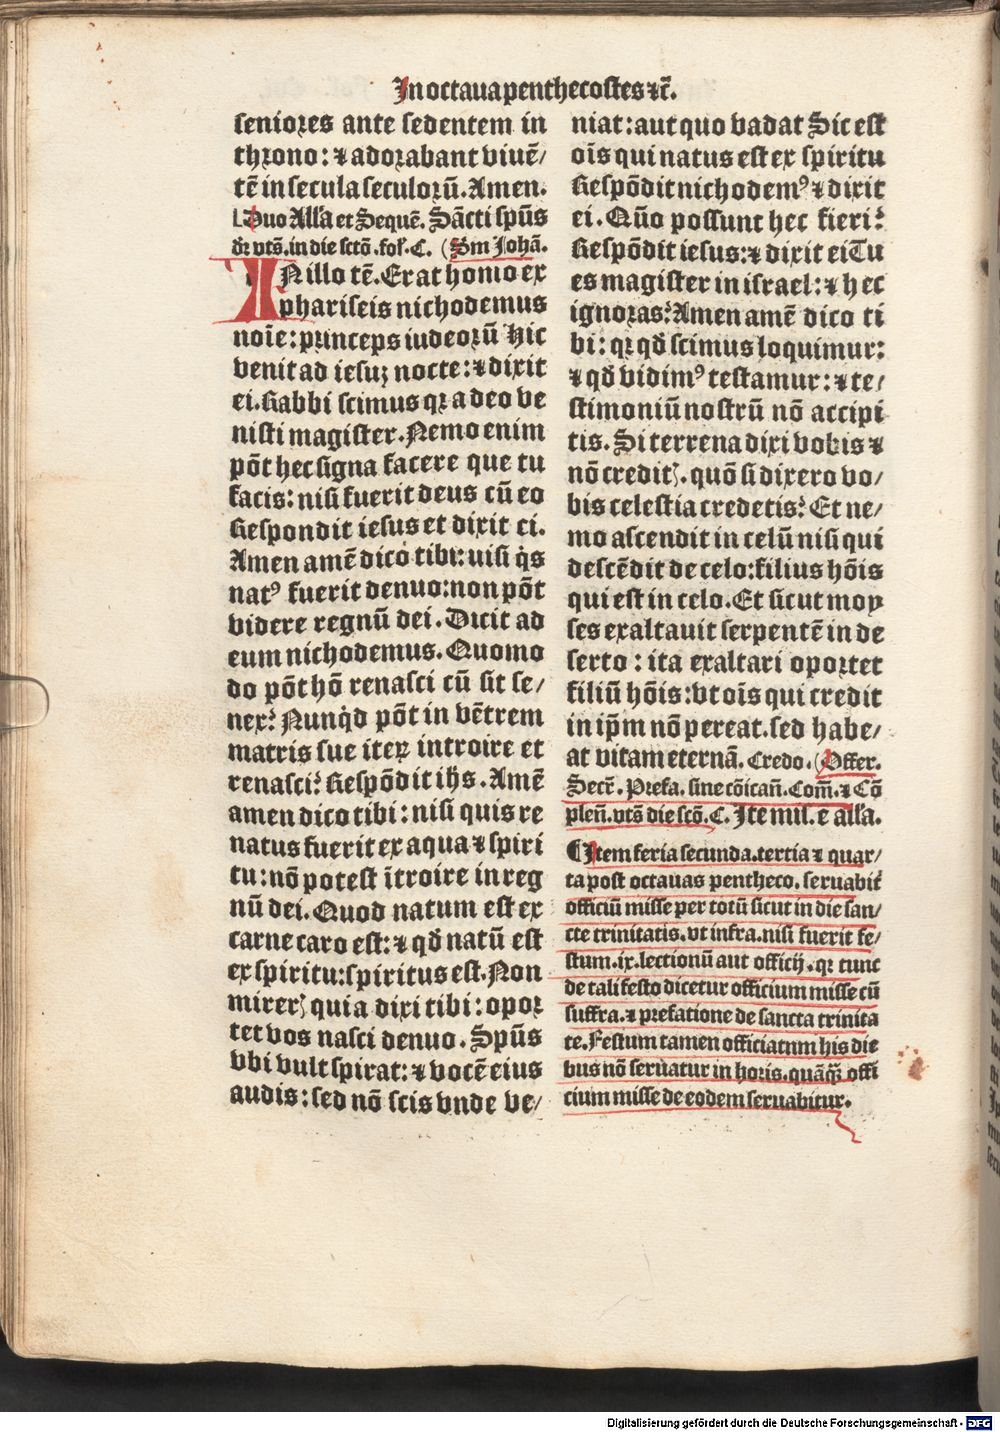 In octaua penthecostes ⁊c̃.
seniores ante sedentem in
throno: ⁊ adorabant viuē/
tē in secula seculorū. Amen.
Duo Allˀa et Sequē. Sācti spūs
ðr vts̄. in die sctō. fol. C. (Sm Johā.
IN illo tē. Erat homo ex
phariseis nichodemus
noīe: princeps iudeorū Hic
venit ad iesuȝ nocte: ⁊ dixit
ei. Rabbi scimus qꝛ a deo ve
nisti magister. Nemo enim
pōt hec signa facere que tu
facis: nisi fuerit deus cū eo
Respondit iesus et dixit ei.
Amen amē dico tibi: uisi q̇s
natꝰ fuerit denuo: non pōt
videre regnū dei. Dicit ad
eum nichodemus. Quomo
do pōt hō renasci cū sit se/
nex? Nunq̇d pōt in vētrem
matris sue iteꝝ introire et
renasci? Respōdit ihs̄. Amē
amen dico tibi: nisi quis re
natus fuerit ex aqua ⁊ spiri
tu: nō potest ītroire in reg
nū dei. Quod natum est ex
carne caro est: ⁊ qð natū est
ex spiritu: spiritus est. Non
mirerꝭ quia dixi tibi: opoꝛ
tet vos nasci denuo. Spūs
vbi vult spirat: ⁊ vocē eius
audis: sed nō scis vnde ve/
niat: aut quo vadat Sic est
oīs qui natus est ex spiritu
Respōdit nichodemꝰ ⁊ dixit
ei. Quō possunt hec fieri?
Respōdit iesus: ⁊ dixit ei Tu
es magister in israel: ⁊ hec
ignoras? Amen amē dico ti
bi: qꝛ qð scimus loquimur:
⁊ qð vidimꝰ testamur: ⁊ te/
stimoniū nostrū nō accipi
tis. Si terrena dixi vobis ⁊
nō creditꝭ. quō si dixero vo/
bis celestia credetis? Et ne/
mo ascendit in celū nisi qui
descēdit de celo: filius hōis
qui est in celo. Et sicut moy
ses exaltauit serpentē in de
serto: ita exaltari oportet
filiū hōis: vt oīs qui credit
in ip̄m nō pereat. sed habe/
at vitam eternā. Credo. (Offer.
Secr̄. Prefa. sine cōicañ. Com̄. ⁊ Cō
pleñ. vts̄ die scō. C. Ite mil. e allˀa.
¶ Item feria secunda. tertia ⁊ quar/
ta post octauas pentheco. seruabit̄
officiū misse per totū sicut in die san/
cte trinitatis. vt infra. nisi fuerit fe/
stum. ix. lectionū aut officij. qꝛ tunc
de tali festo dicetur officium misse cū
suffra. ⁊ prefatione de sancta trinita
te. Festum tamen officiatum his die
bus nō seruatur in horis. quāq̄ꝫ offi
cium misse de eodem seruabitur.
Digitalisierung gefördert durch die Deutsche Forschungsgemeinschaft - DFG